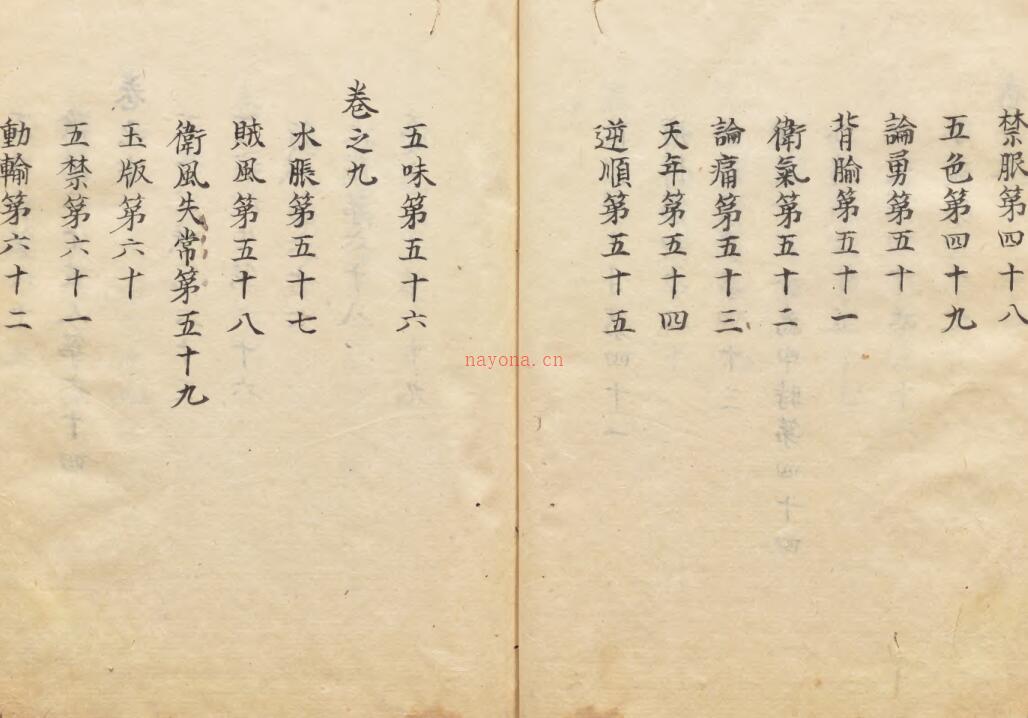 禁服第四十八
五色第四十九
論勇第五十
背腧第五十一
衛氣第五十二
論痛第五十三
天年第五十四
逆順第五十五
五味第五十六
卷之九
水脹第五十七
賊風第五十八
衛風失常第五十九
玉版第六十
五禁第六十一
動輸第六十二
nayona.cn